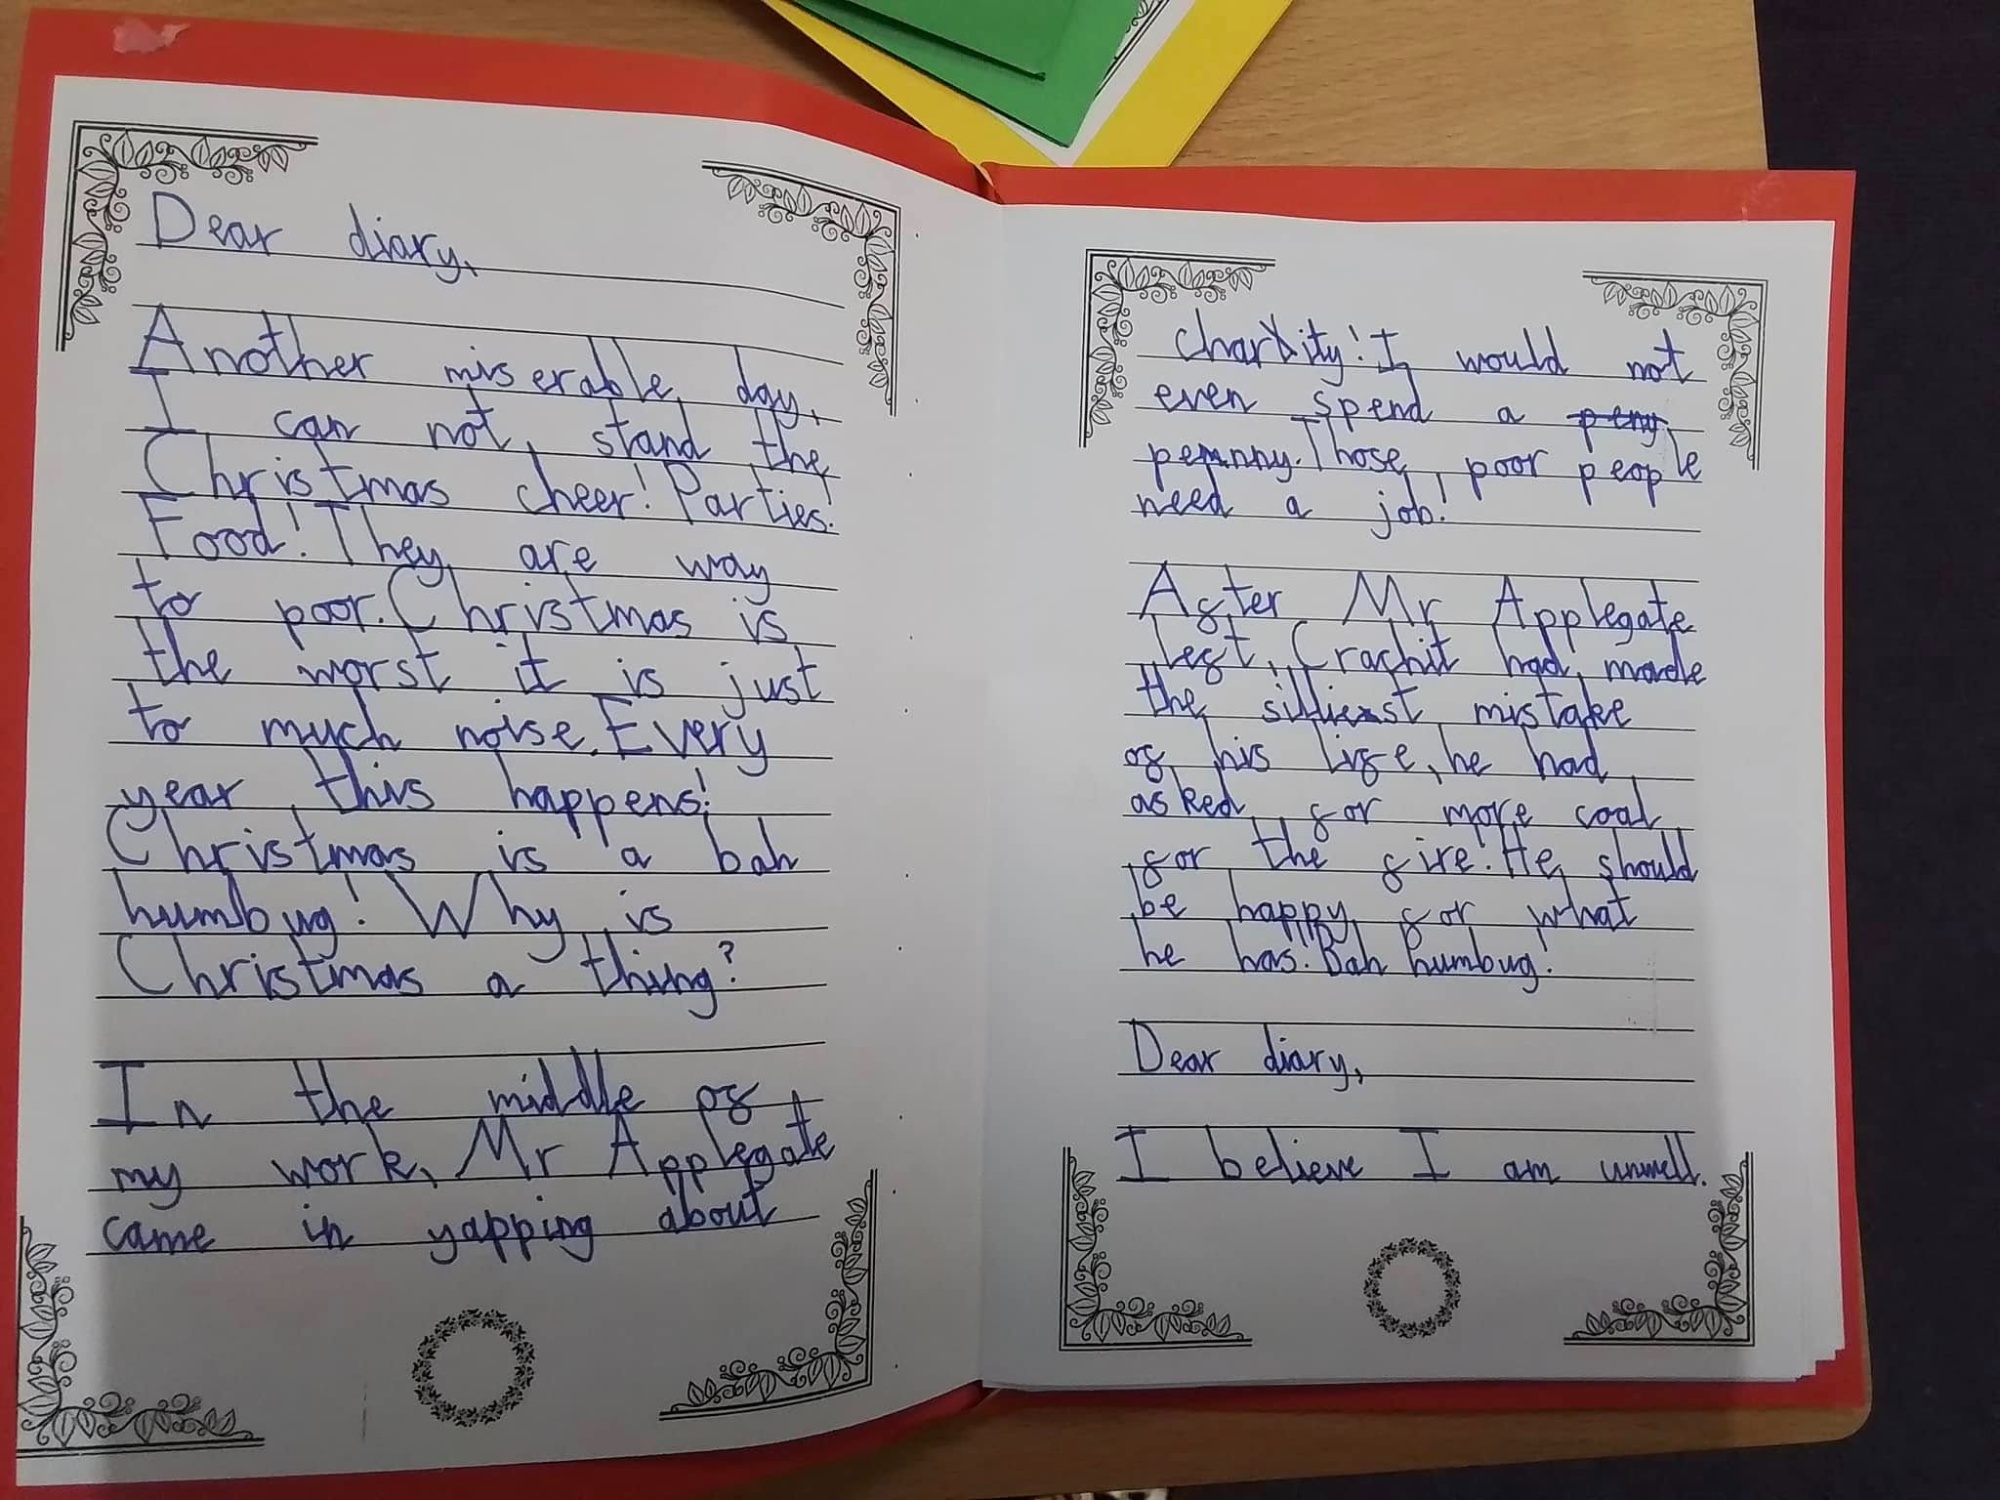 Dear diary,
Another miserable day,
I can not stand the
Christmas cheer! Parties!
Food! They are way
to poor. Christmas is
the worst it is just
to much noise. Every
year this happens!
Christmas is a bah
humbug! Why is
Christmas a thing?
In the middle of
my work, Mr Applegate
came in yapping about
charity! I would not
even spend a peny
pennny. Those poor people
need a job!
After Mr Applegate
left, Crachit had made
the silliest mistake
of his life, he had
asked for more coal
for the fire! He should
be happy for what
he has! Bah humbug!
Dear diary,
I believe I am unwell.